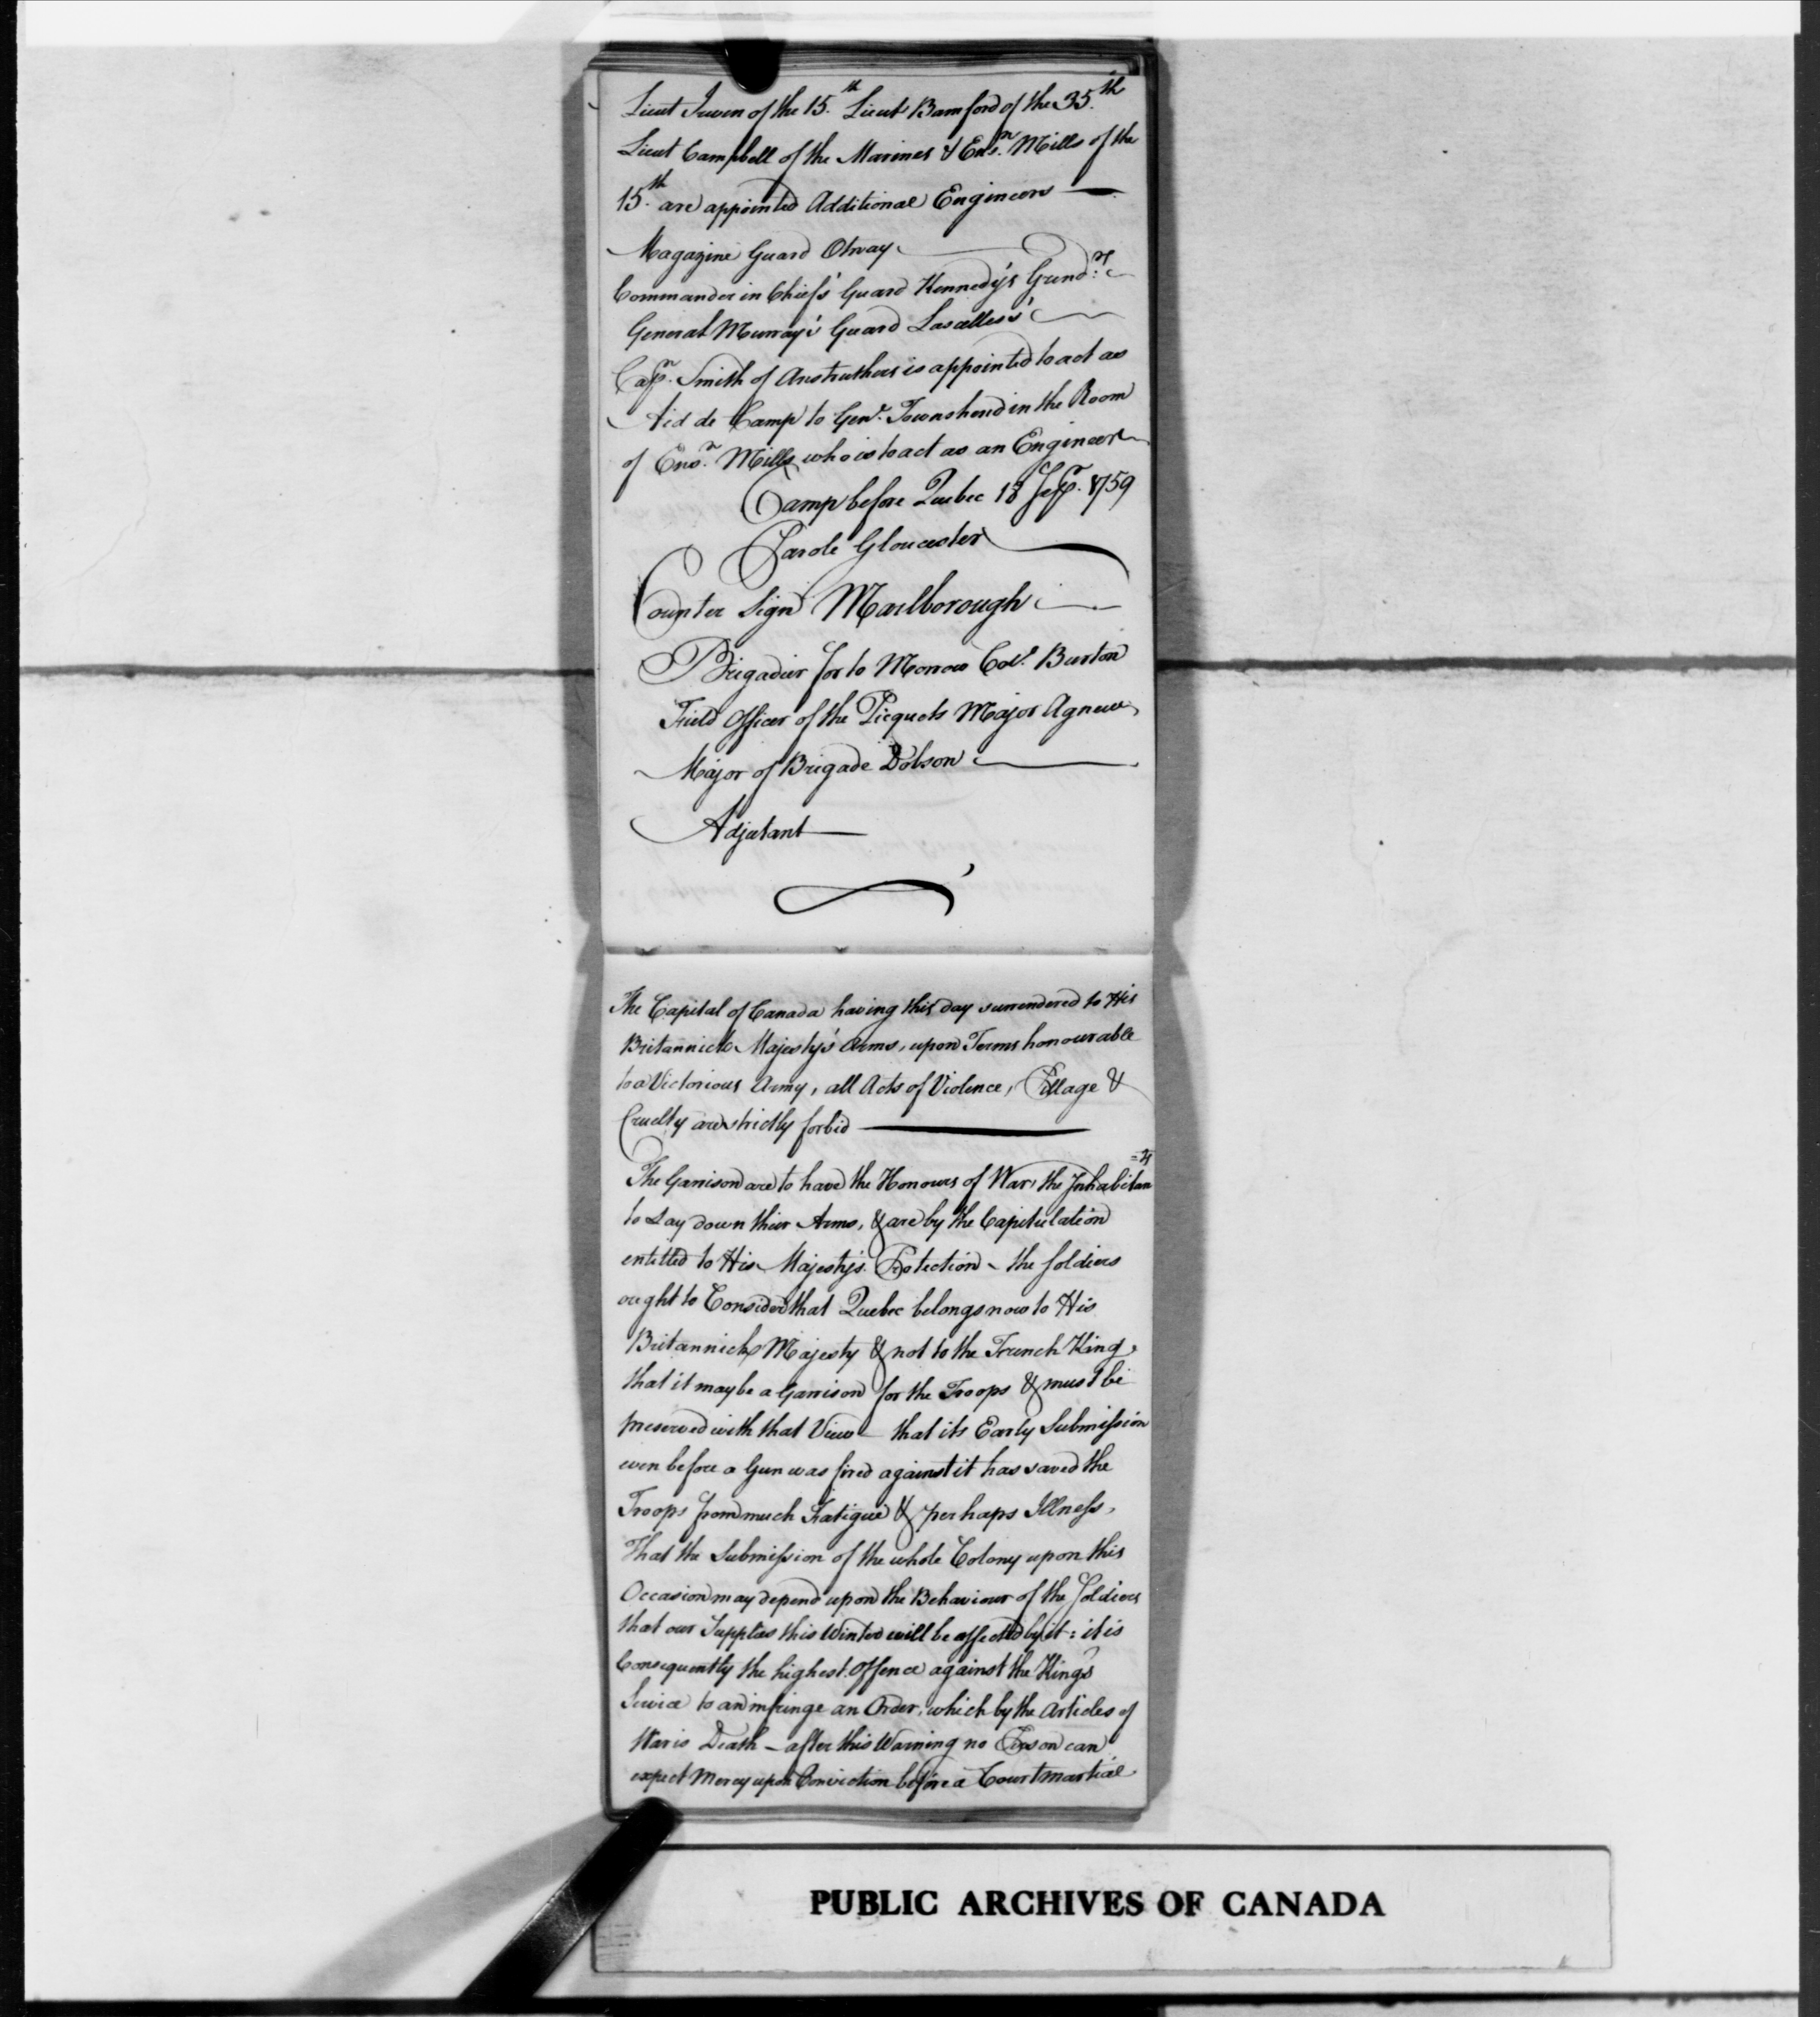 Lieut Irwen of the 15.th Lieut Bamford of the 35.th
Lieut Campbell of the Marines & Ens.n Mills of the
15.th are appointed Additional Engineers —
Magazine Guard Otway
Commander in Chief's Guard Kennedy's Grend.rs
General Murray's Guard Lascelles's
Cap.n Smith of Anstruthers is appointed to act as
Aid de Camp to Gen.l Townshend in the Room
of Ens.n Mills who is to act as an Engineer
Camp before Quebec 18 Sep.r 1759
Parole Gloucester
Counter Sign Marlborough
Brigadier for to Morrow Col.l Burton
Field Officer of the Picquets Major Agnew
Major of Brigade Dobson
Adjutant —
The Capital of Canada having this day surrendered to His
Britannick Majesty's Arms, upon Terms honourable
to a Victorious Army, all Acts of Violence, Pillage &
Cruelty are strictly forbid —
The Garrison are to have the Honours of War, the Inhabitan=ts
to Lay down their Arms, & are by the Capitulation
entitled to His Majesty's Protection - the Soldiers
ought to Consider that Quebec belongs now to His
Britannick Majesty & not to the French King,
that it may be a Garrison for the Troops & must be
preserved with that View — that its Early Submission
even before a Gun was fired against it has saved the
Troops from much Fatigue & perhaps Illness,
That the Submission of the whole Colony upon this
Occasion may depend upon the Behaviour of the Soldiers
that our Supplies this Winter will be affected by it: it is
Consequently the highest Offence against the King's
Service to an infringe an Order, which by the Articles of
War is Death — after this Warning no Person can
expect Mercy upon Conviction before a Court martial
PUBLIC ARCHIVES OF CANADA